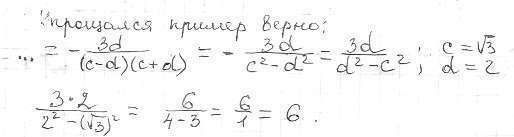 Упрощался пример верно:
... = - 3d/((c-d)(c+d)) = - 3d/(c²-d²) = 3d/(d²-c²); c = √3
d = 2
3·2/(2²-(√3)²) = 6/(4-3) = 6/1 = 6.